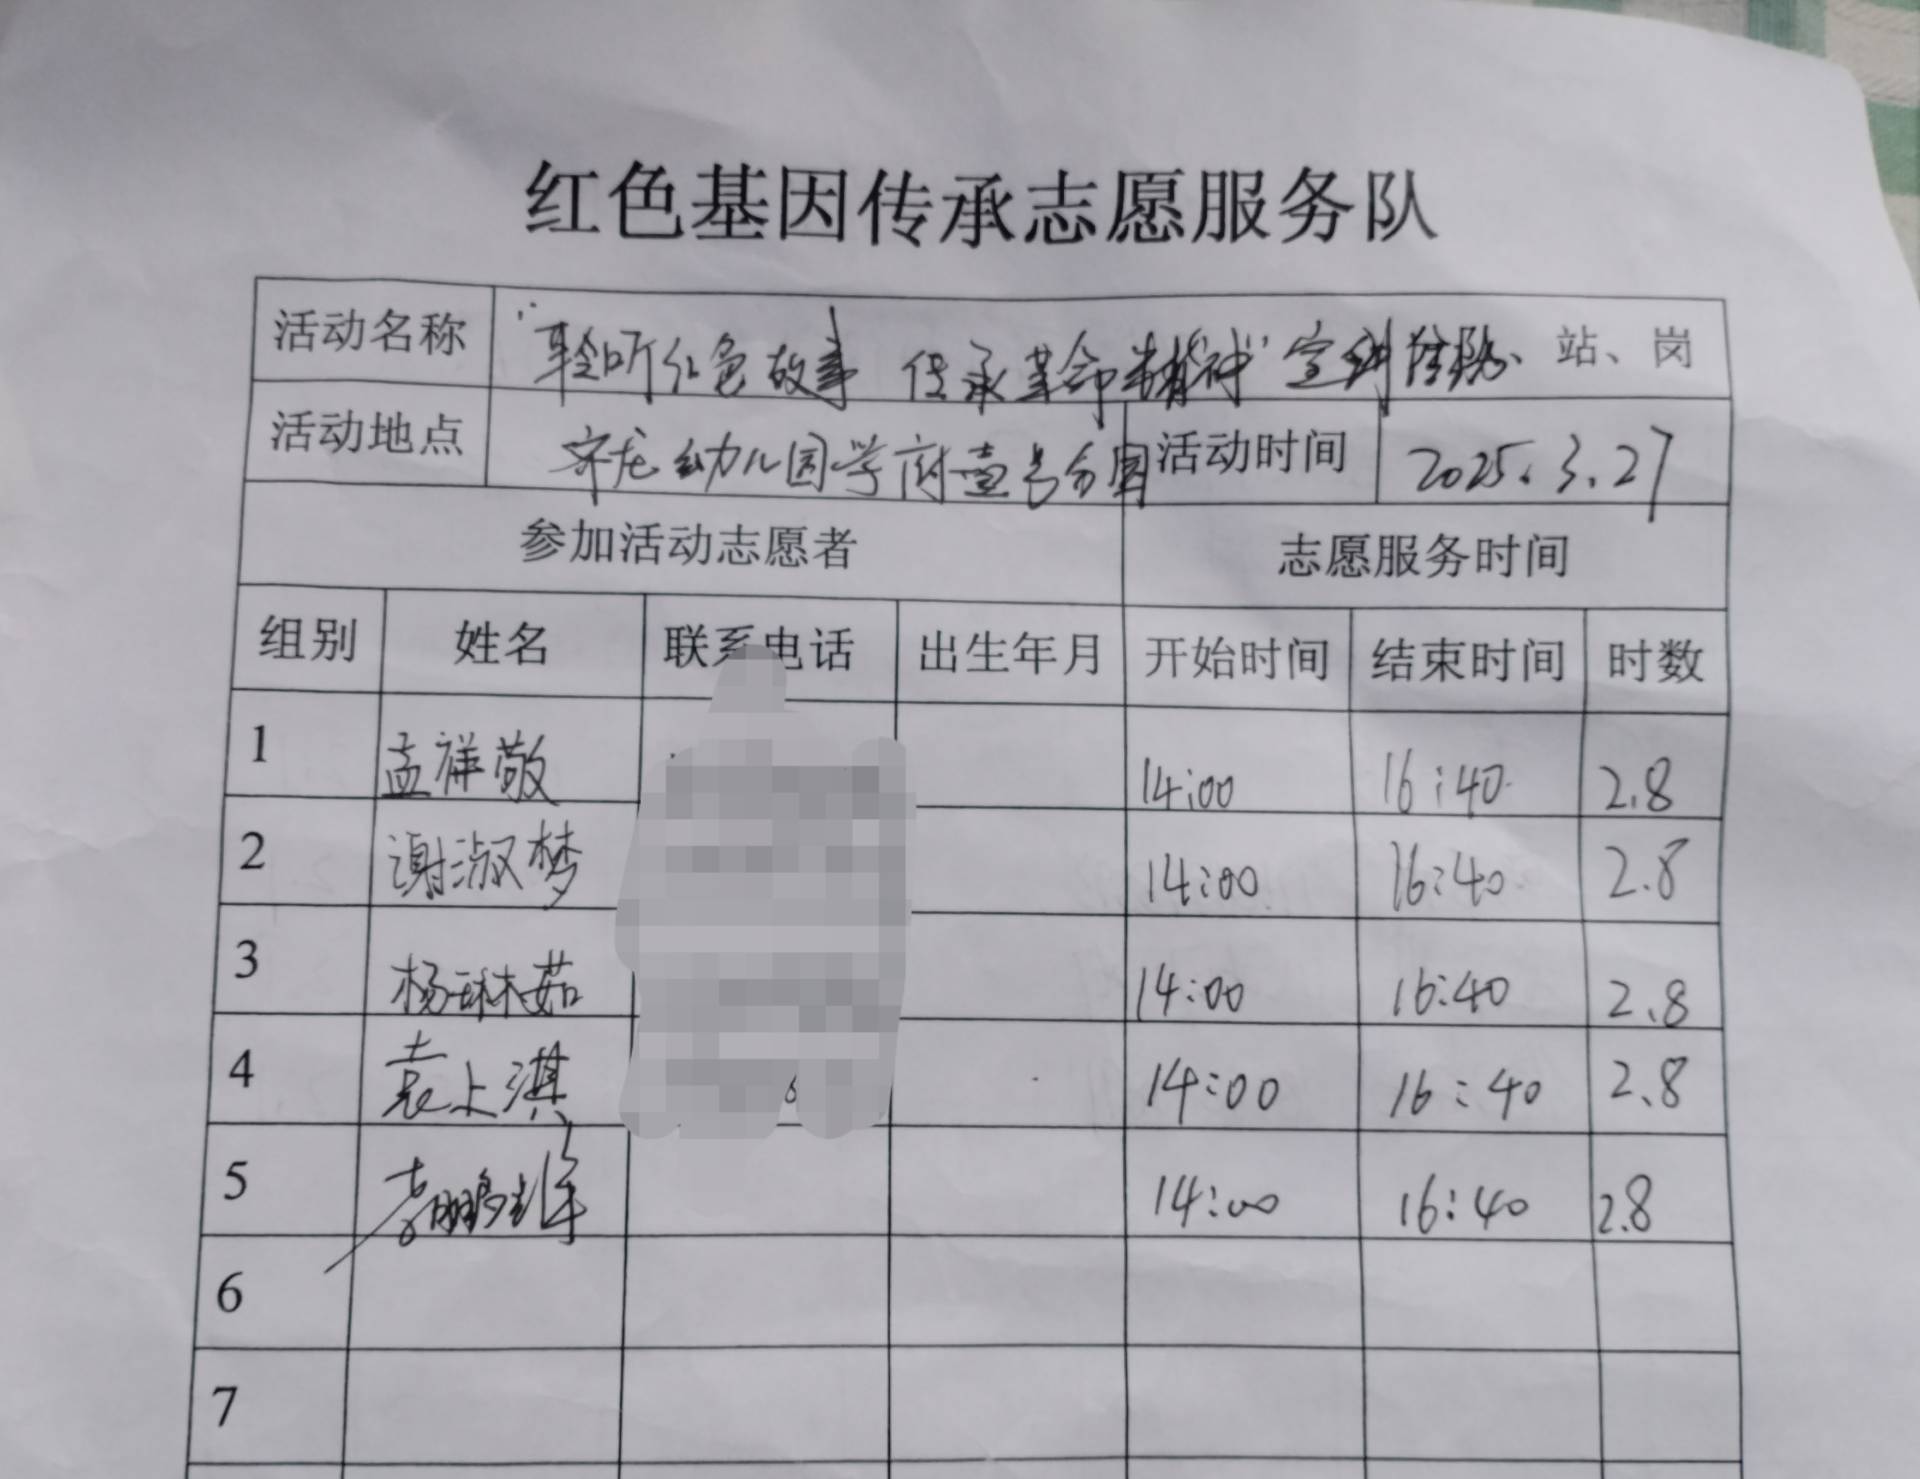 红色基因传承志愿服务队
活动名称 "聆听红色故事 传承革命精神"宣讲 站、岗
活动地点 齐龙幼儿园学府壹号分园 活动时间 2025.3.27
参加活动志愿者 志愿服务时间
组别 姓名 联系电话 出生年月 开始时间 结束时间 时数
1 孟祥敬 14:00 16:40 2.8
2 谢淑梦 14:00 16:40 2.8
3 杨琳茹 14:00 16:40 2.8
4 袁上淇 14:00 16:40 2.8
5 14:00 16:40 2.8
6
7